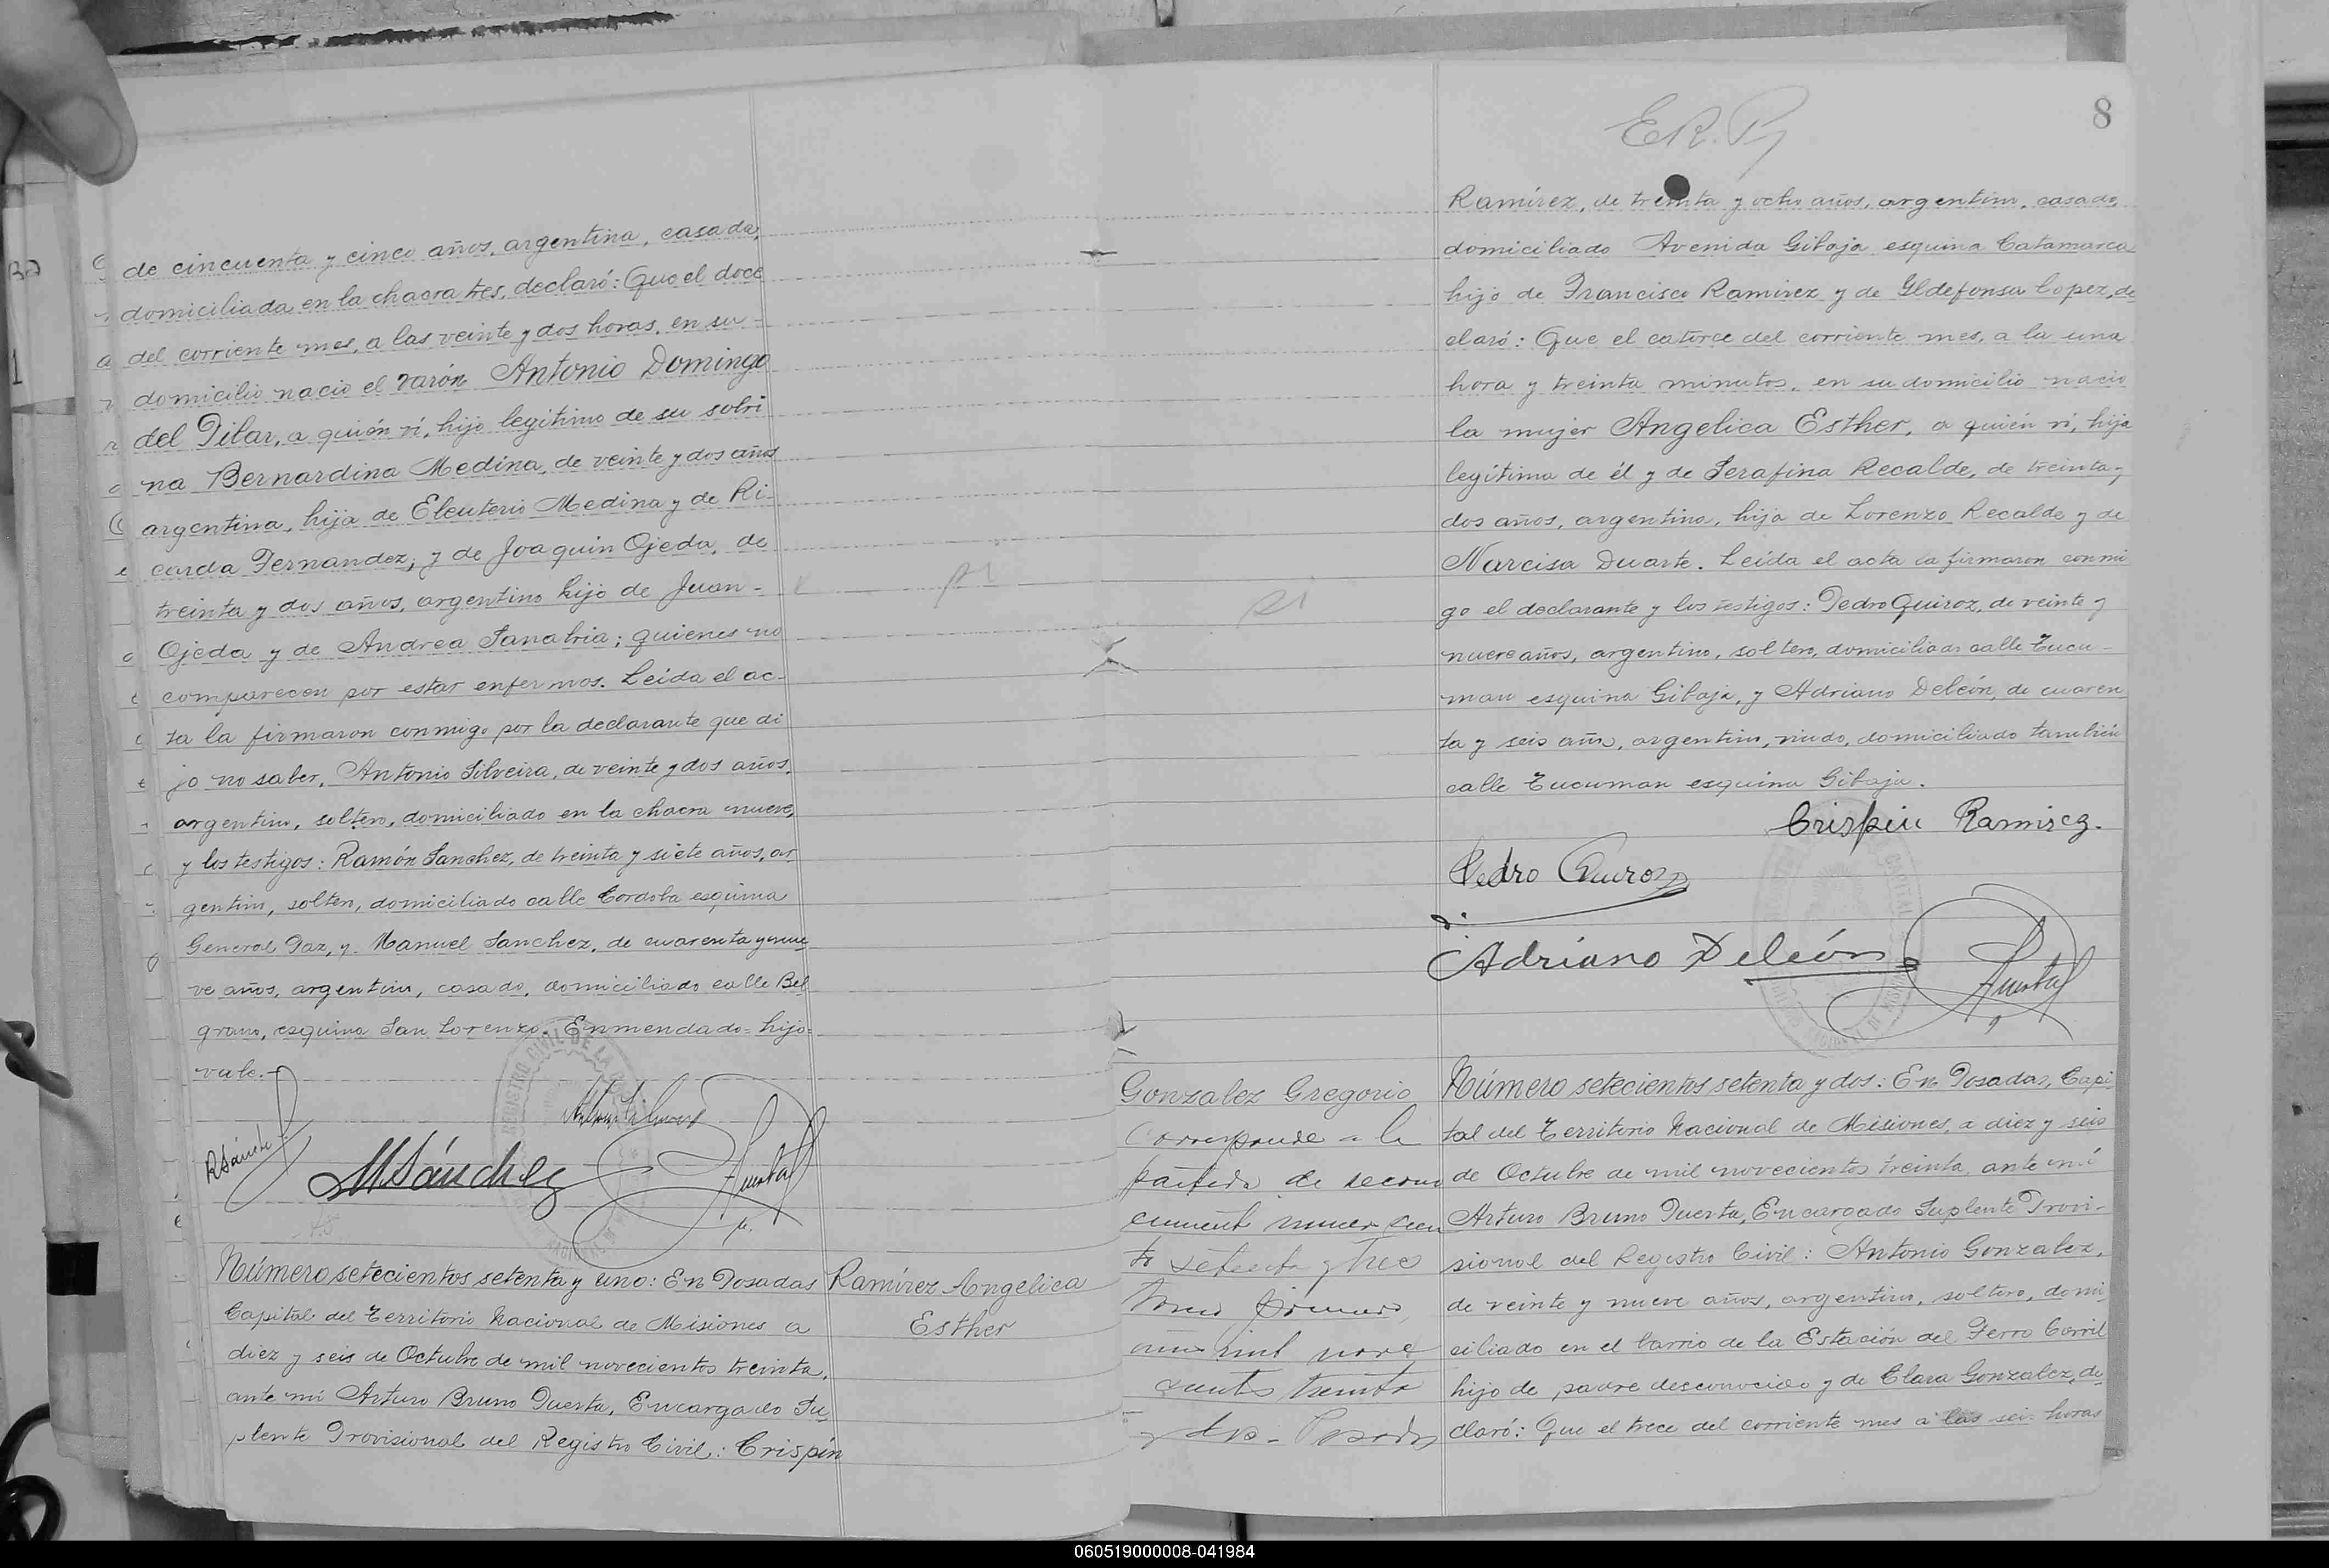 de cincuenta y cinco años, argentina, casada,
domiciliada en la chacra tres, declaró: Que el doce
del corriente mes, a las veinte y dos horas, en su
domicilio nació el varón Antonio Domingo
del Pilar, a quién ví, hijo legítimo de su sobri
na Bernardina Medina, de veinte y dos años
argentina, hija de Eleuterio Medina y de Ri-
carda Fernandez; y de Joaquin Ojeda, de
treinta y dos años, argentino hijo de Juan -
Ojeda y de Andrea Sanabria; quienes no
comparecen por estar enfermos. Leída el ac-
ta la firmaron conmigo por la declarante que di
jo no saber, Antonio Silveira, de veinte y dos años,
argentino, soltero, domiciliado en la chacra nueve,
y los testigos: Ramón Sanchez, de treinta y siete años, ar
gentino, soltero, domiciliado calle Cordoba esquina
General Paz, y Manuel Sanchez, de cuarenta y nue
ve años, argentino, casado, domiciliado calle Bel
grano, esquina San Lorenzo. Enmendado= hijo=
vale.-
RSánchez
MSánchez
Número setecientos setenta y uno: En Posadas
Capital del Territorio Nacional de Misiones a
diez y seis de Octubre de mil novecientos treinta,
ante mí Arturo Bruno Puerta, Encargado Su
plente Provisional del Registro Civil: Crispín
Ramírez Angelica
Esther
E.R.P.
8
Ramírez, de treinta y ocho años, argentino, casado,
domiciliado Avenida Gibaja esquina Catamarca
hijo de Francisco Ramirez y de Ildefonsa Lopez, de
claró: Que el catorce del corriente mes, a la una
hora y treinta minutos, en su domicilio nació
la mujer Angelica Esther, a quién ví, hija
legítima de él y de Serafina Recalde, de treinta y
dos años, argentina, hija de Lorenzo Recalde y de
Narcisa Duarte. Leída el acta la firmaron conmi
go el declarante y los testigos: Pedro Quiroz, de veinte y
nueve años, argentino, soltero, domiciliado calle Tucu-
man esquina Gibaja, y Adriano Deleón, de cuaren
ta y seis años, argentino, viudo, domiciliado también
calle Tucuman esquina Gibaja.
Crispin Ramirez.
Pedro Quiroz
Adriano Deleón
Gonzalez Gregorio
Corresponde a la
partida de recono
cimiento numero cien
to setenta y tres
tomo primero,
año mil nove
cientos treinta
y dos - Posadas
Número setecientos setenta y dos: En Posadas, Capi
tal del Territorio Nacional de Misiones, a diez y seis
de Octubre de mil novecientos treinta, ante mí
Arturo Bruno Puerta, Encargado Suplente Provi-
sional del Registro Civil: Antonio Gonzalez,
de veinte y nueve años, argentino, soltero, domi
ciliado en el barrio de la Estación del Ferro Carril
hijo de padre desconocido y de Clara Gonzalez, de
claró: Que el trece del corriente mes a las seis horas
060519000008-041984